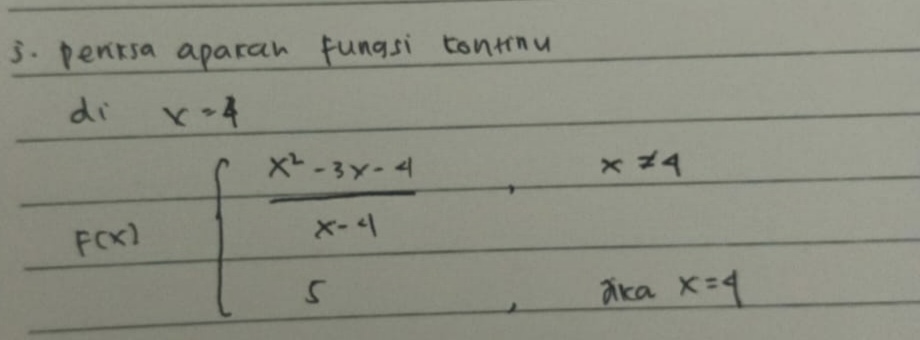 3. periksa apakah fungsi kontinu
di x = 4
F(x) { x² - 3x - 4 / x - 4 , x ≠ 4
5 , jika x = 4